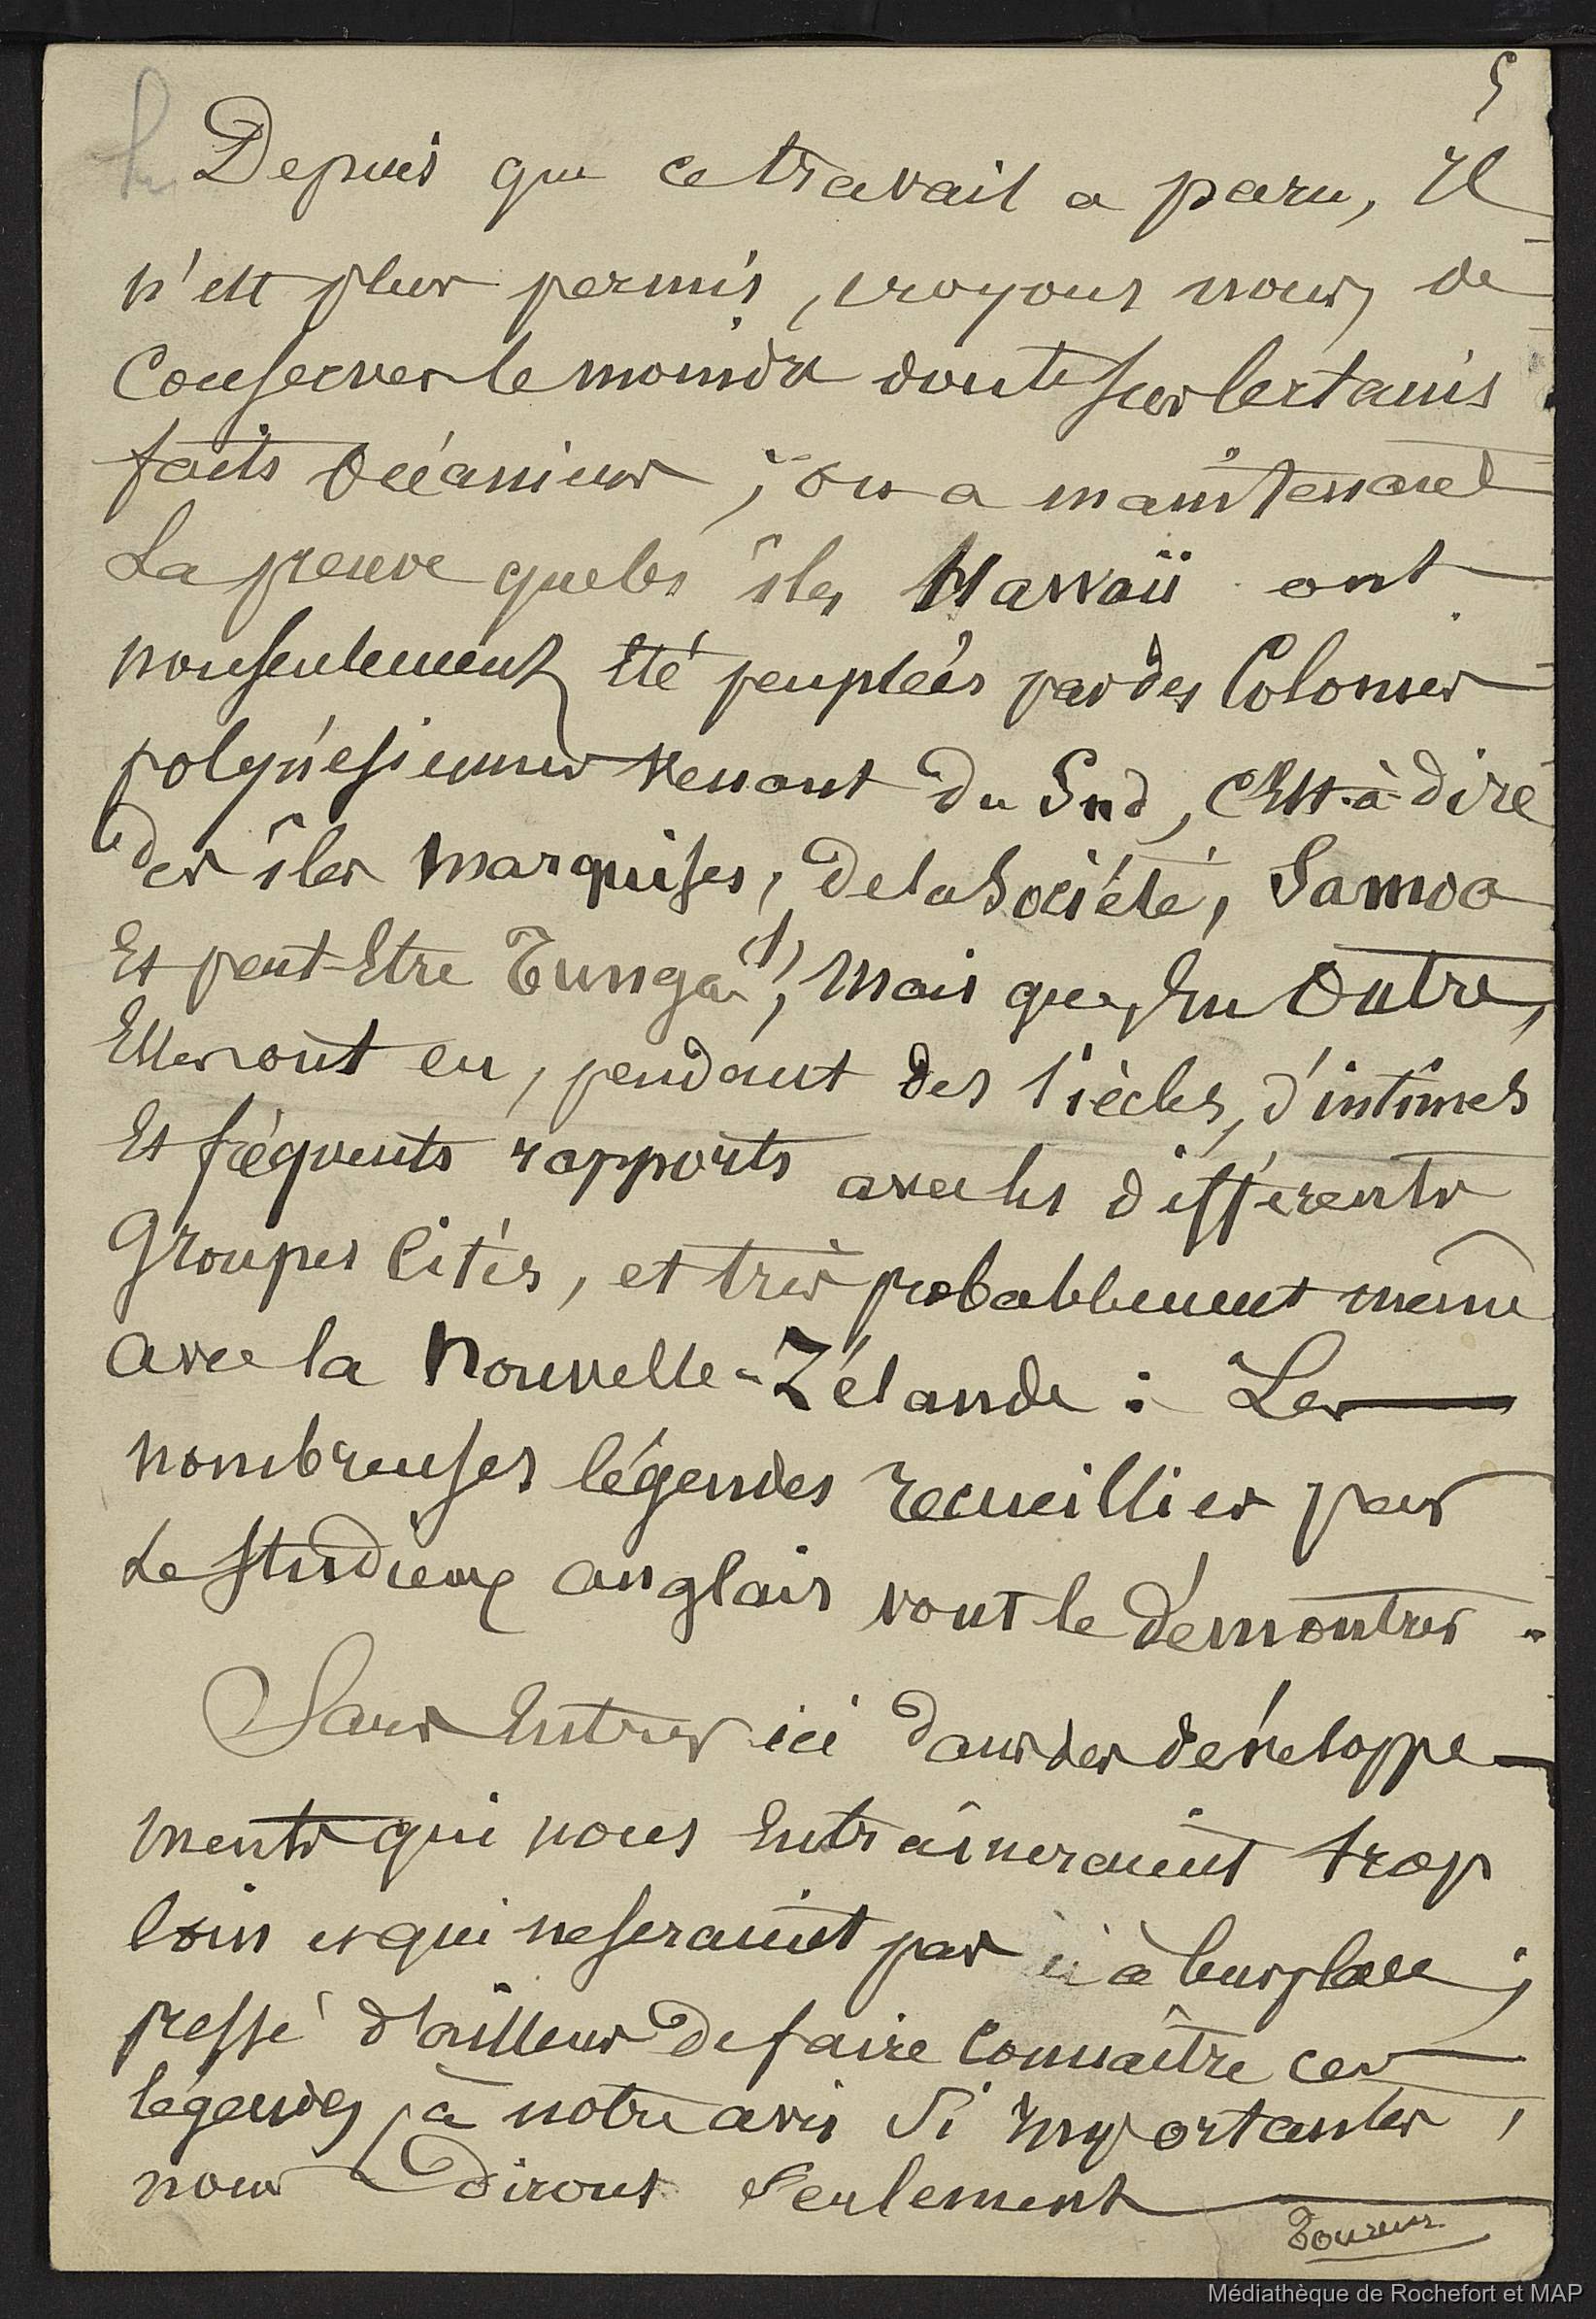 5
Depuis que ce travail a paru, Il
n'est plus permis, croyons nous, de
Conserver le moindre doute sur certains
faits océaniens ; on a maintenant
La preuve que les îles Hawaii ont
nonseulement été peuplées par des Colonies
polynésiennes venant du Sud, c'est-à-dire
des îles Marquises, de la Société, Samoa
Et peut-Etre Tunga (1), Mais que, En Outre,
Elles ont eu, pendant des siècles, d'intimes
Et fréquents rapports avec les différents
Groupes Cités, et très probablement même
avec la Nouvelle-Zélande : Les
nombreuses légendes recueillies par
Le studieux anglais vont le démontrer.
Sans Entrer ici dans des développe-
ments qui nous Entraîneraient trop
loin et qui ne seraient pas ici à leur place ;
pressé d'ailleurs de faire Connaître ces
légendes, à notre avis si importantes,
nous dirons seulement
Médiathèque de Rochefort et MAP